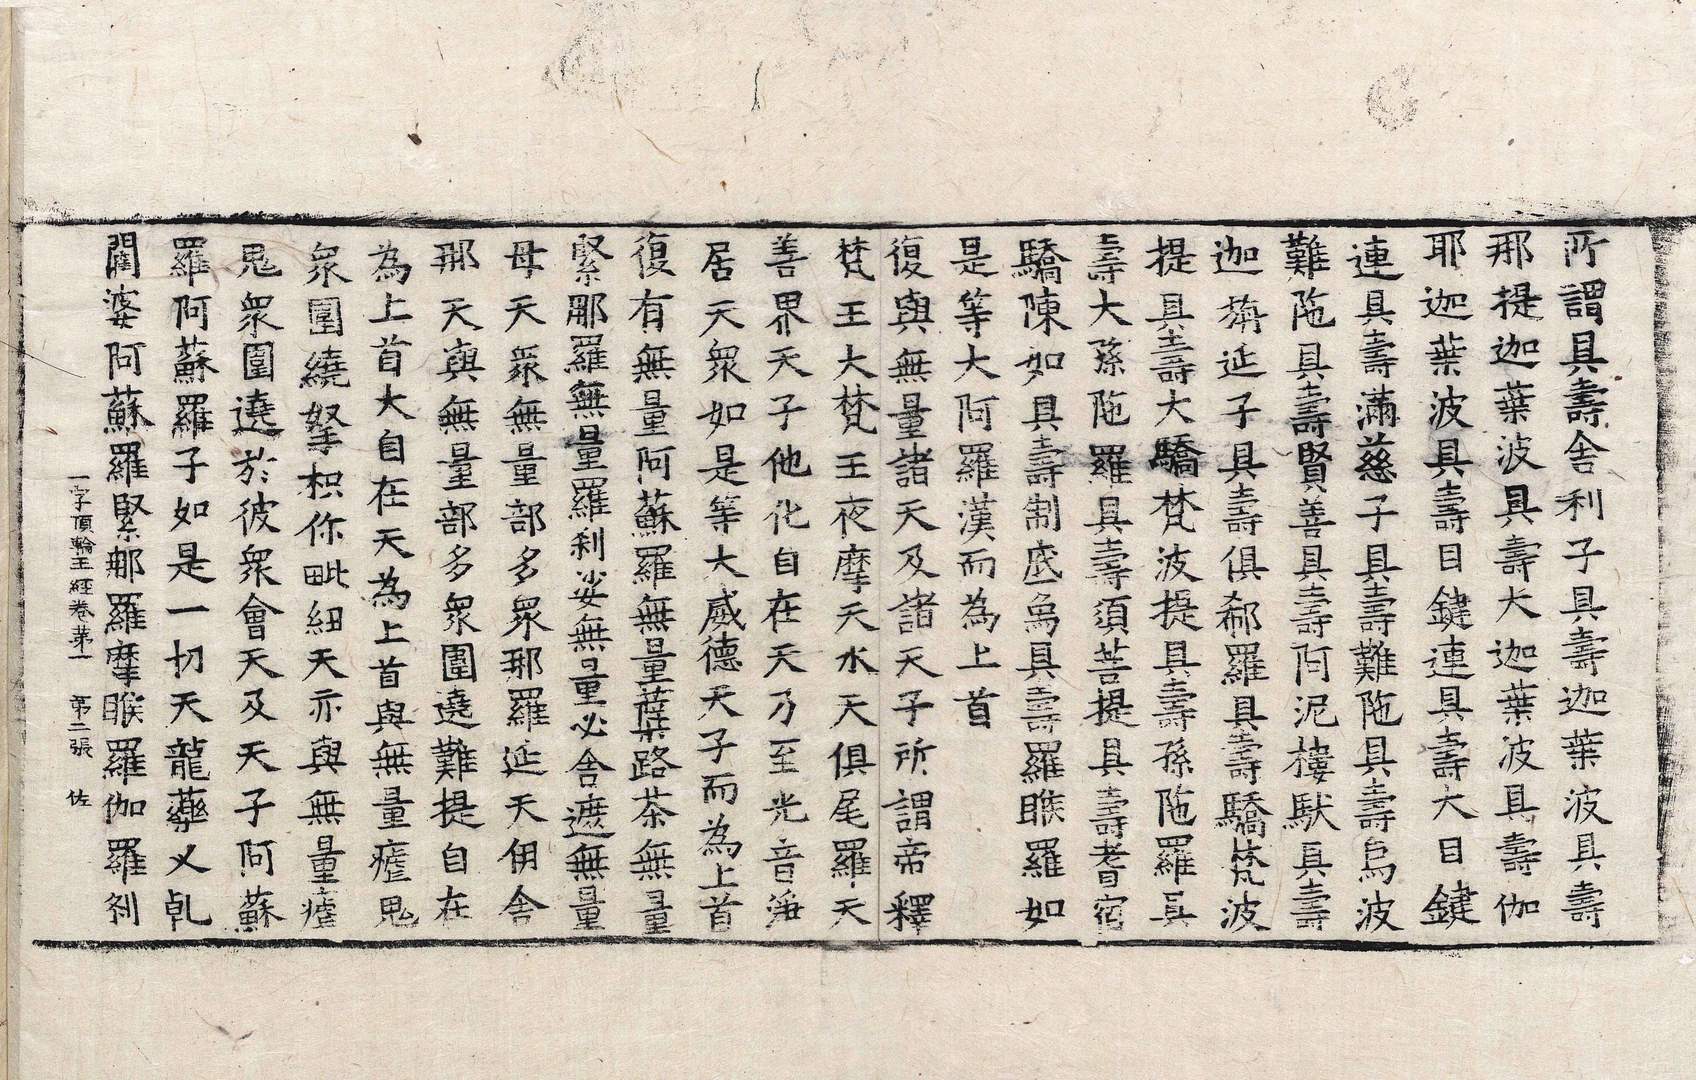 所謂具壽舍利子具壽迦葉波具壽
那提迦葉波具壽大迦葉波具壽伽
耶迦葉波具壽目鍵連具壽大目鍵
連具壽滿慈子具壽難陁具壽烏波
難陁具壽賢善具壽阿泥樓馱具壽
迦旃延子具壽俱郗羅具壽驕梵波
提具壽大驕梵波提具壽孫陁羅具
壽大孫陁羅具壽須菩提具壽耆宿
驕陳如具壽制底烏具壽羅睺羅如
是等大阿羅漢而為上首
復與無量諸天及諸天子所謂帝釋
梵王大梵王夜摩天水天俱尾羅天
善界天子他化自在天乃至光音淨
居天衆如是等大威德天子而為上首
復有無量阿蘇羅無量蘖路茶無量
緊那羅無量羅刹娑無量必舍遮無量
母天衆無量部多衆那羅延天伊舍
那天與無量部多衆圍遶難提自在
為上首大自在天為上首與無量瘧鬼
衆圍繞拏枳你毗紐天亦與無量瘧
鬼衆圍遶於彼衆會天及天子阿蘇
羅阿蘇羅子如是一切天龍藥叉乹
闥婆阿蘇羅緊那羅摩睺羅伽羅刹
一字頂輪王經卷苐一　苐二張　佐